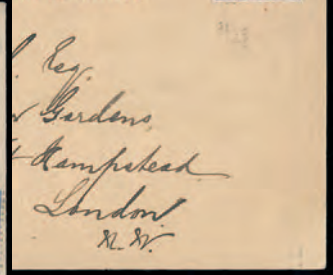 Esq.
Gardens,
Hampstead
London
N.W.